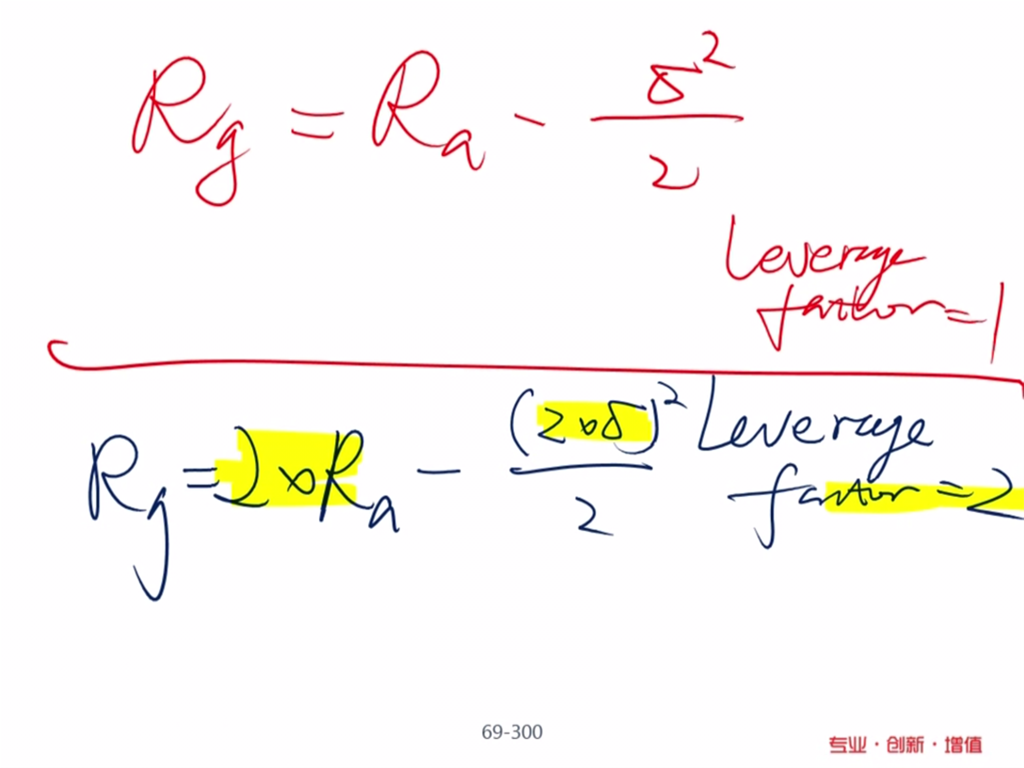 Rg = Ra - δ²/2
Leverage
factor = 1
Rg = 2×Ra - (2×δ)²/2
Leverage
factor = 2
69-300
专业·创新·增值